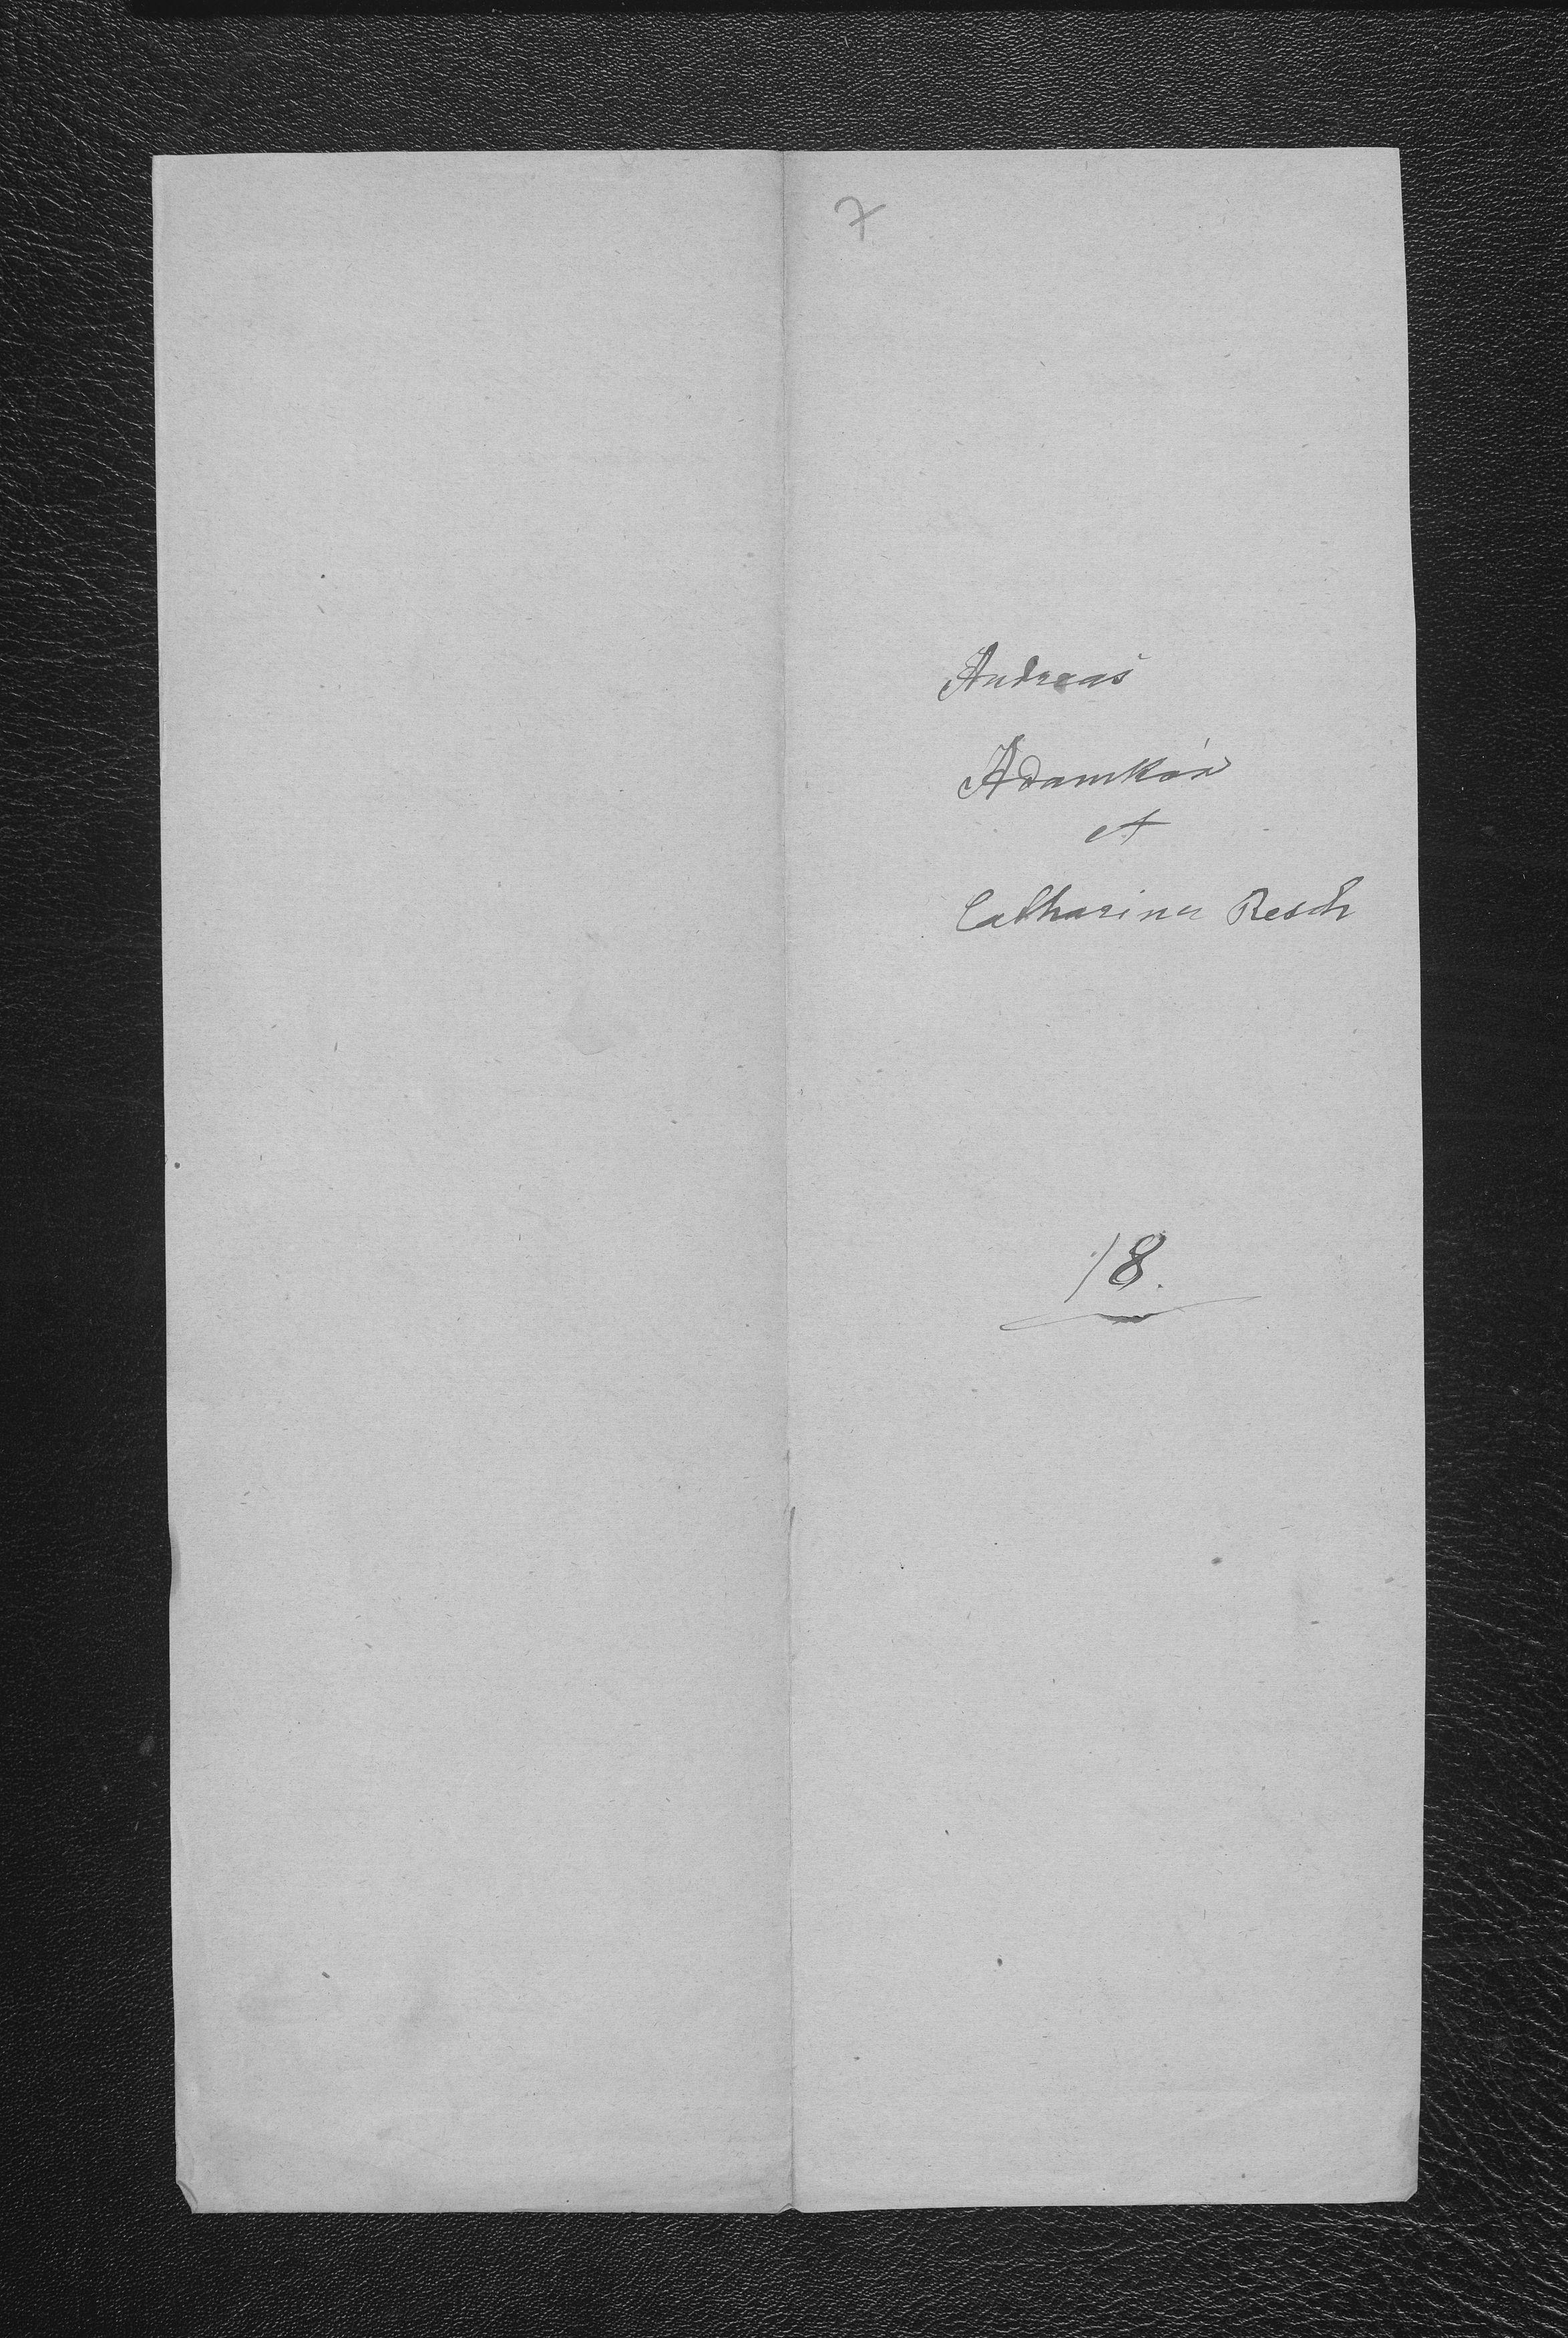 7
Andreas
Adamkó
et
Catharina Resch
18.